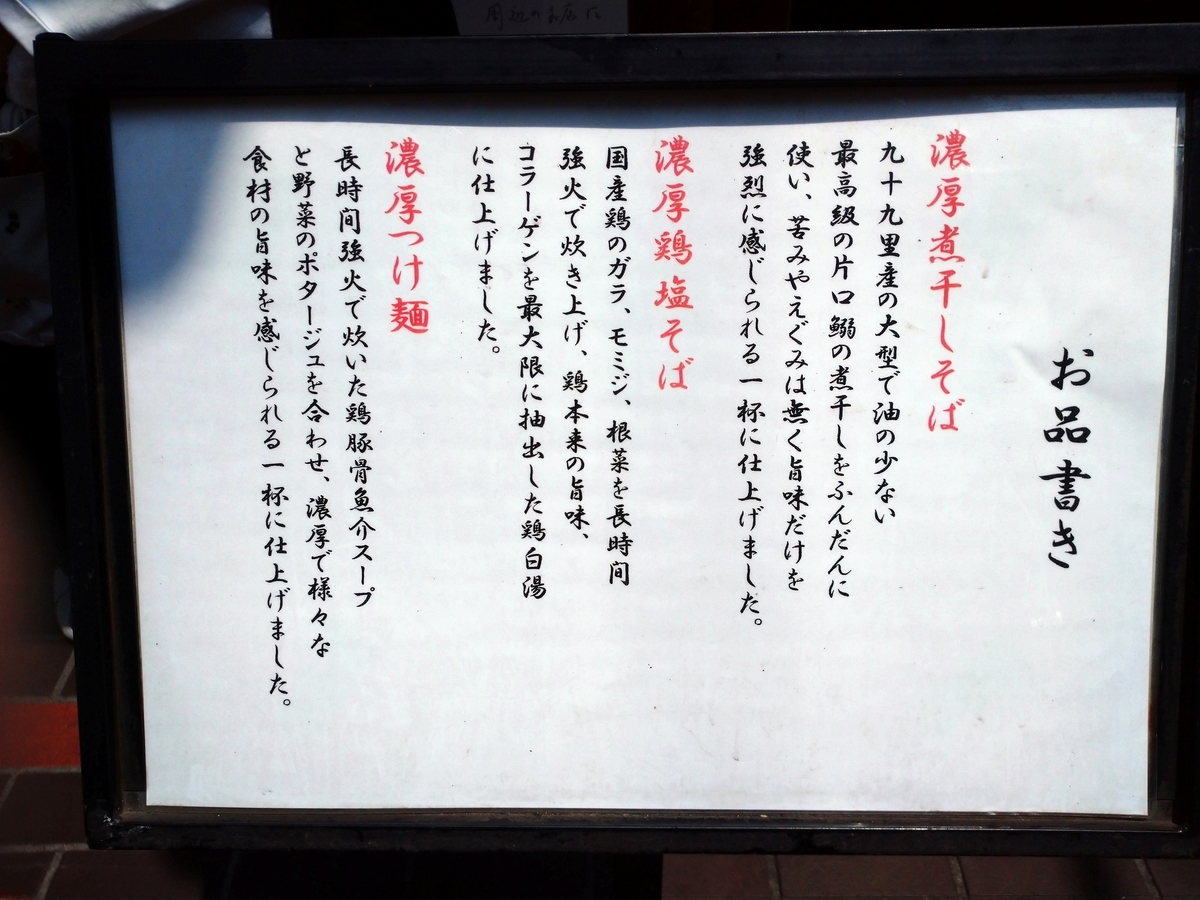 お品書き
濃厚煮干しそば
九十九里産の大型で油の少ない
最高級の片口鰯の煮干しをふんだんに
使い、苦みやえぐみは無く旨味だけを
強烈に感じられる一杯に仕上げました。
濃厚鶏塩そば
国産鶏のガラ、モミジ、根菜を長時間
強火で炊き上げ、鶏本来の旨味、
コラーゲンを最大限に抽出した鶏白湯
に仕上げました。
濃厚つけ麺
長時間強火で炊いた鶏豚骨魚介スープ
と野菜のポタージュを合わせ、濃厚で様々な
食材の旨味を感じられる一杯に仕上げました。